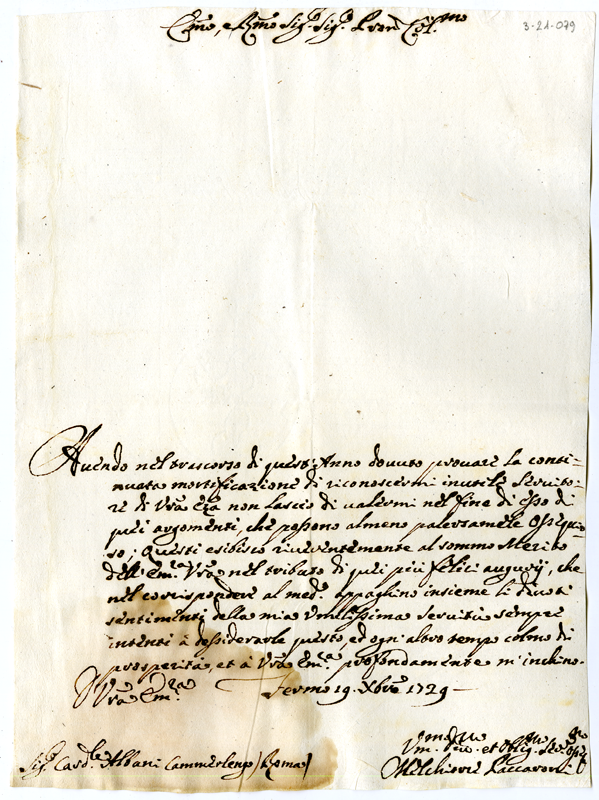 3-21-079
Em̃o, e Rm̃o Sig.r Sig.r Pron Col.mo
Auendo nel trascorso di quest'Anno douuto prouare la conti=
nuata mortificazione di riconoscermi inutile Seruito=
re di Vr̃a Eza non lascio di ualermi nel fine di esso di
quei argomenti, che possono almeno palesarmele Ossequio=
so; Questi esibisco riuerentemente al sommo Merito
dell'Em.za Vr̃a nel tributo di quei più felici augurij, che
nel corrispondere al med.o appaghino insieme li deuoti
sentimenti della mia Vmilissima seruitù sempre
intenti à desiderarle questo ed ogni altro tempo colmo di
prosperità, et à Vr̃a Em.za profondamente m'inchino.
D Vr̃a Em.za Fermo 19. Xbre 1729
Vm.mo et Oblig.mo Ser.
Sig.r Card.le Albani Cammerlengo / Roma /
Melchiorre Paccaroni